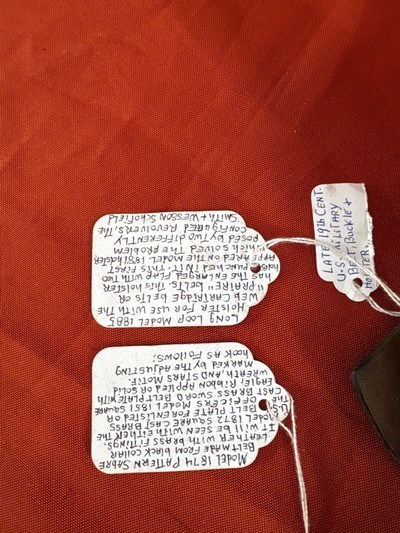 Model 1874 PATTERN SABRE
BELT MADE FROM black COLLAR
LEATHER WITH BRASS FITTINGS.
IT will be SEEN WITH EITHER THE
MODEL 1872 SQUARE CAST BRASS
"U.S." BELT PLATE FOR ENLISTED OR
THE OFFICERS MODEL 1851 SQUARE
CAST SWORD BELT PLATE WITH
EAGLE, RIBBON APPLIED OR SOLID
WREATH, AND STARS MOTIF.
MARKED by THE ADJUSTING
HOOK AS FOLLOWS:
LONG LOOP MODEL 1885
HOLSTER FOR USE WITH THE
WEB CARTRIDGE BELTS OR
"PRAIRIE" BELTS. THIS HOLSTER
HAS THE ENLARGED FLAP WITH TWO
HOLES PUNCHED IN IT. THIS FIRST
APPEARED ON THE MODEL 1881 HOLSTER
WHICH SOLVED THE PROBLEM
POSED BY TWO DIFFERENTLY
CONFIGURED REVOLVERS, THE
SMITH + WESSON SCHOFIELD
LATE 19th CENT.
U.S. MILITARY
BELT, BUCKLE +